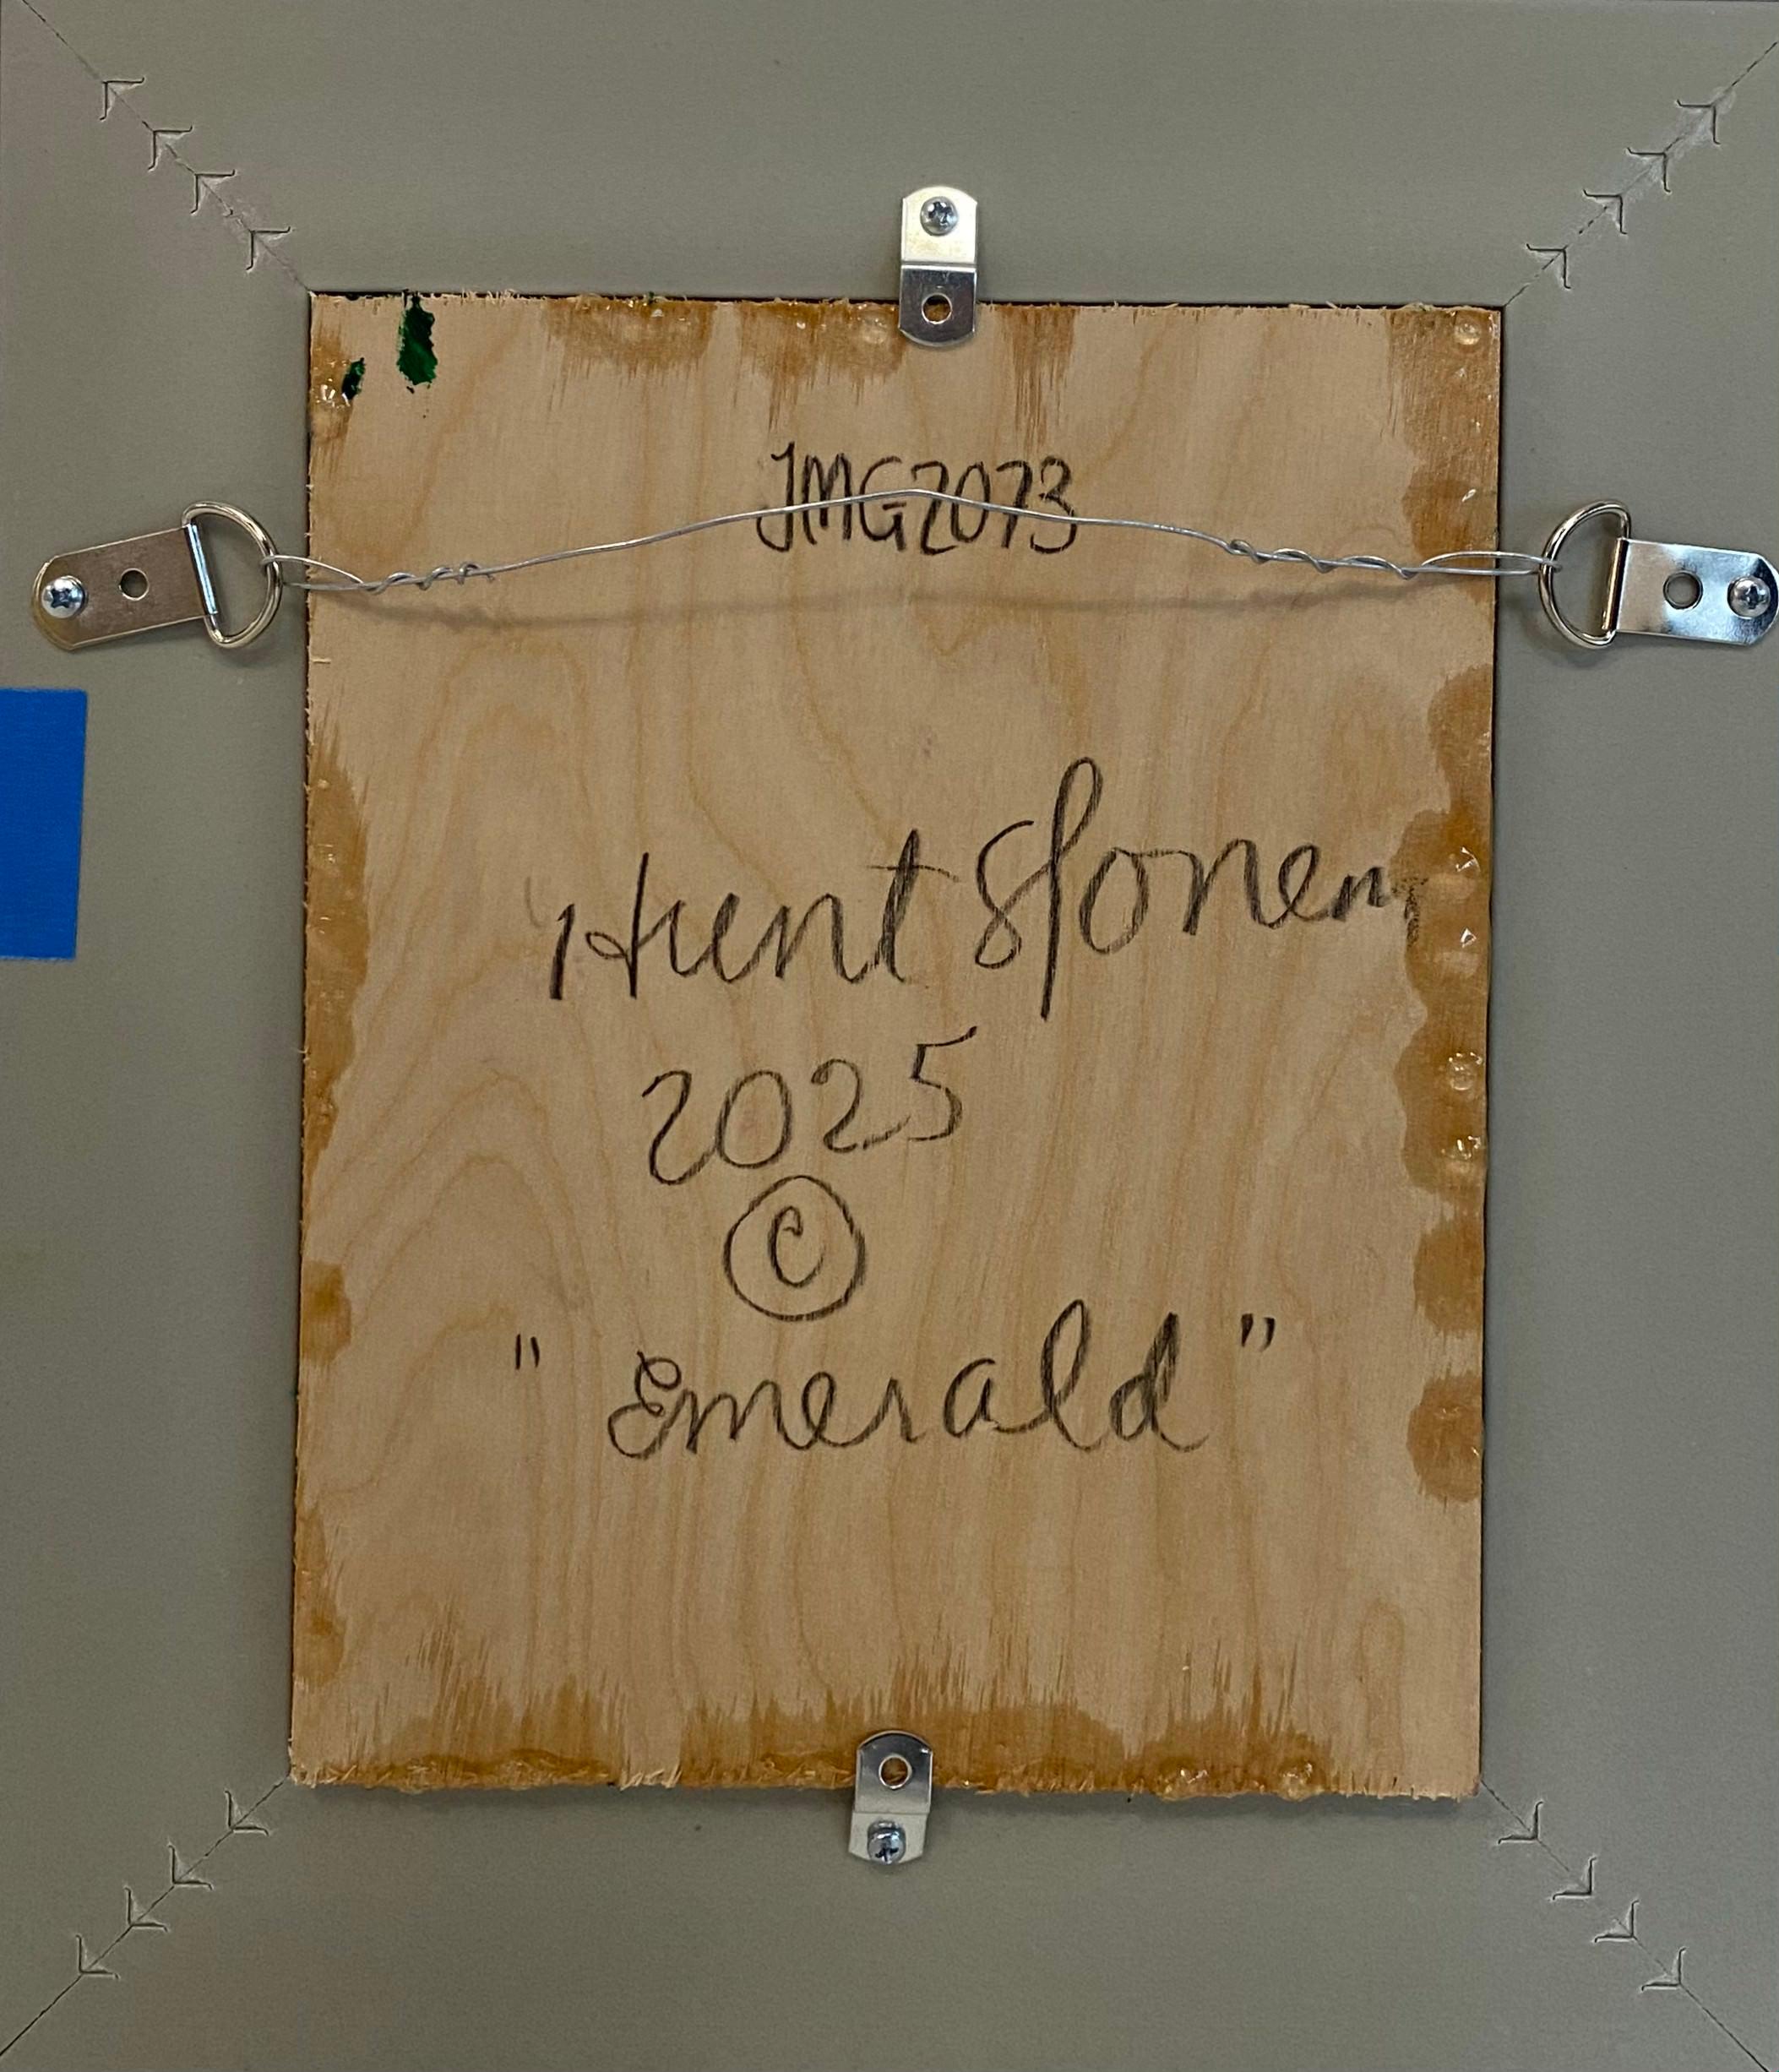 JMG2073
Hunt Slonem
2025
©
"Emerald"